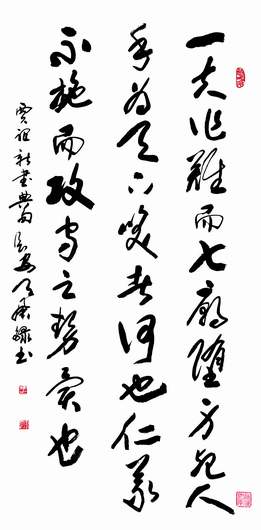 一夫作難而七廟墮身死人
手為天下笑者何也仁義
不施而攻守之勢異也
賈誼新書典句長安書